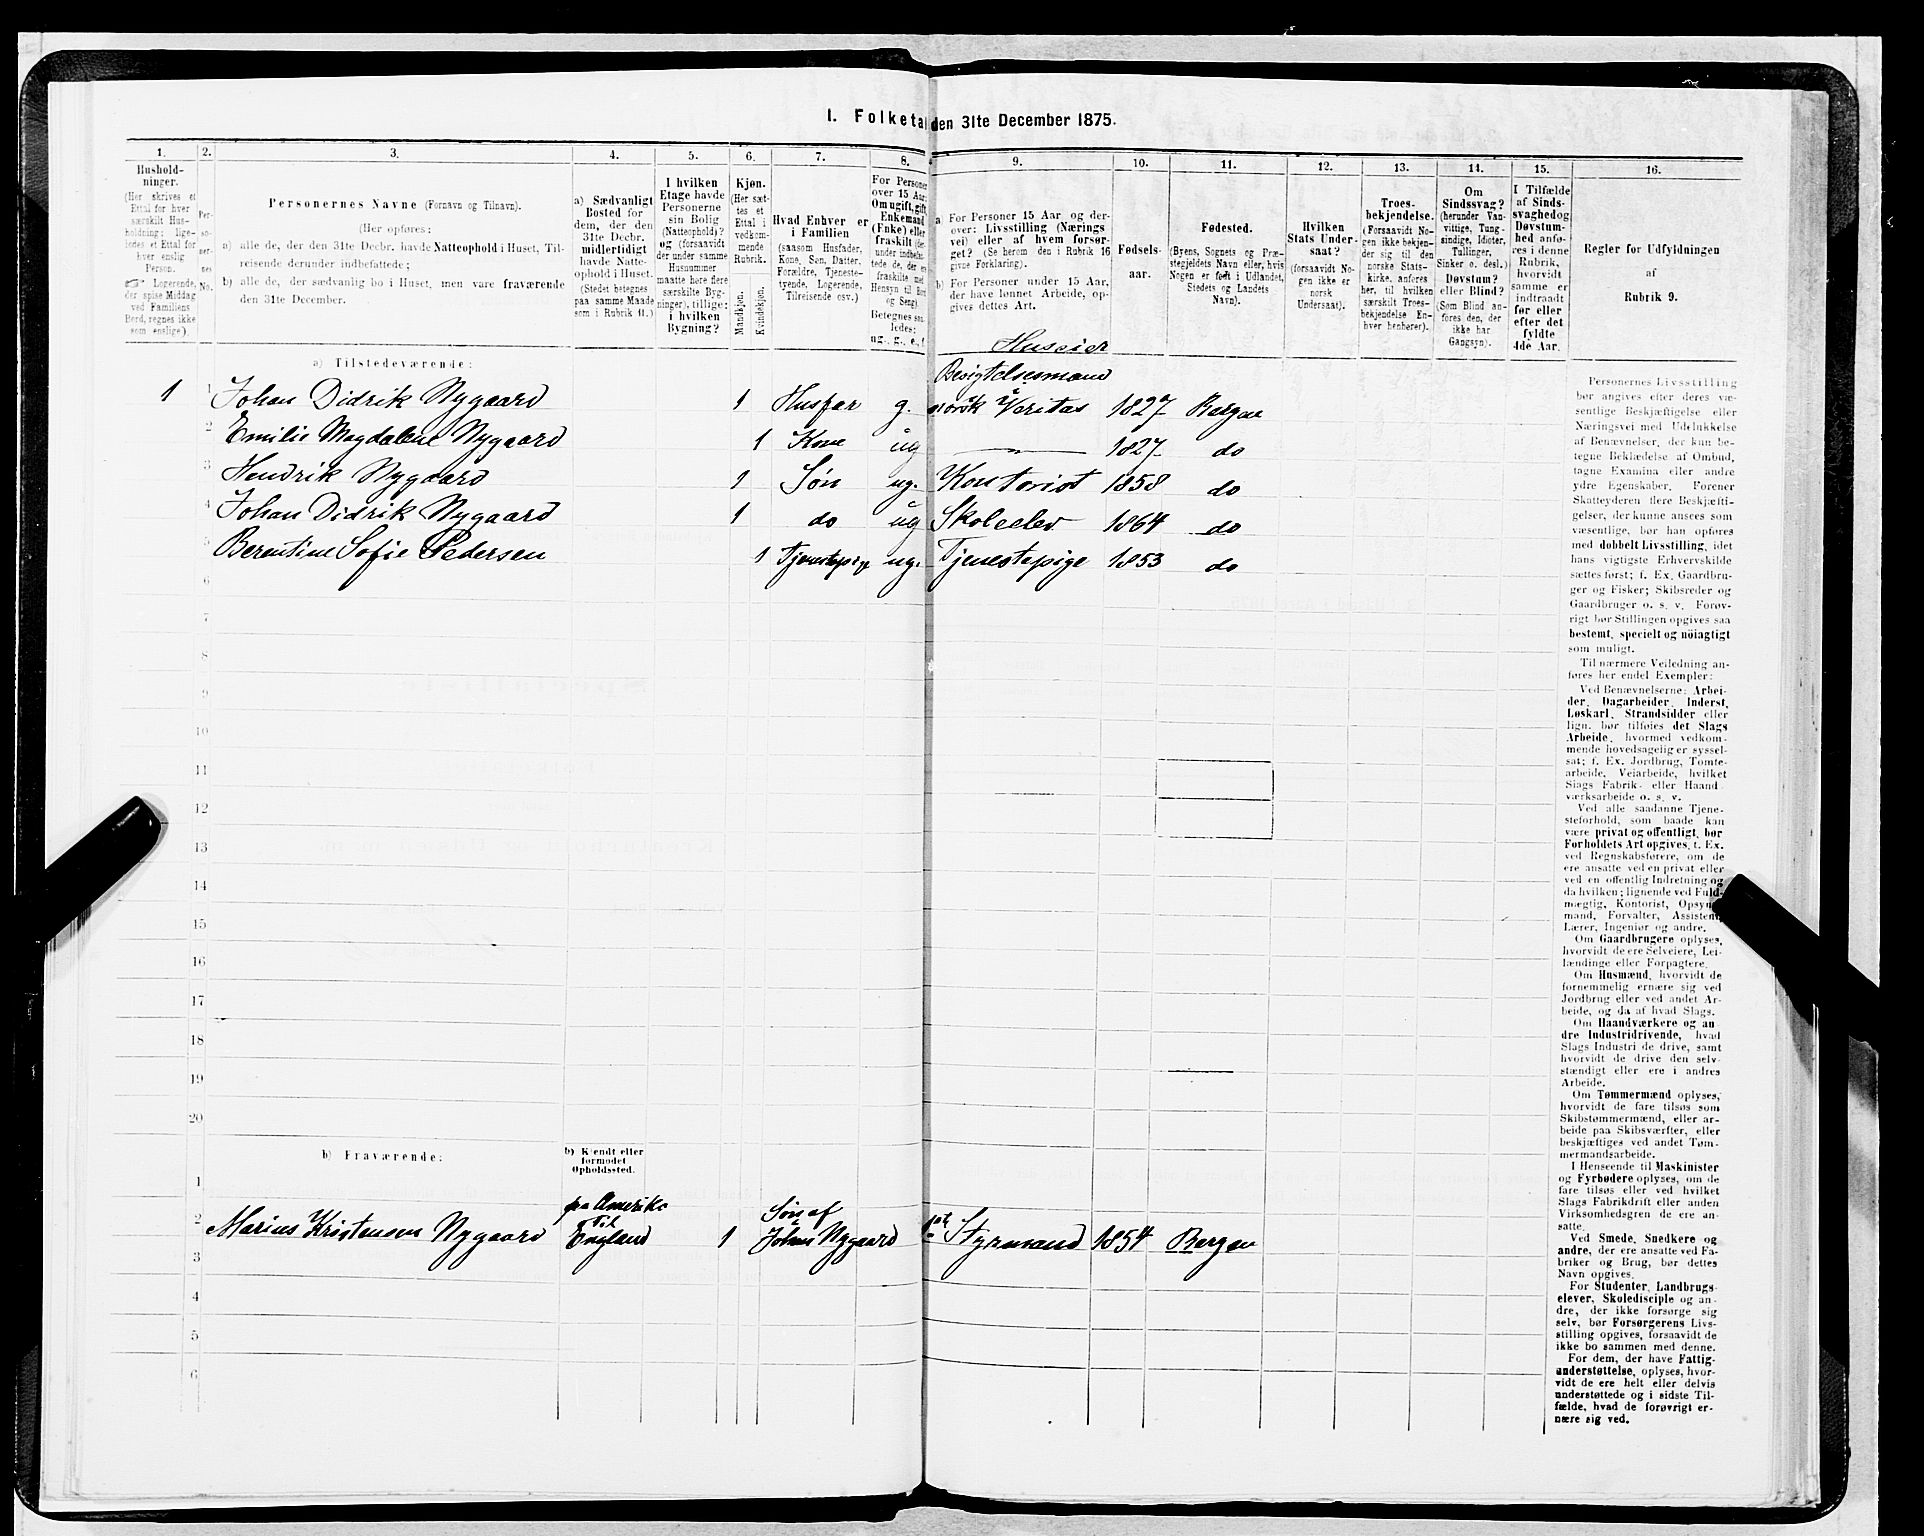 I. Folketal den 31te December 1875.
1. 2. 3. 4. 5. 6. 7. 8. 9. 10. 11. 12. 13. 14. 15. 16.
Hushold-
ninger.
(Her skrives et
Ettal for hver
særskilt Hus-
holdning; lige-
ledes et Ettal for
hver enslig
Person.
☞ Logerende,
der spise Middag
ved Familiens
Bord, regnes ikke
som enslige).
Per-
so-
ner-
nes
No.
Personernes Navne (Fornavn og Tilnavn).
(Her opføres:
a) alle de, der den 31te Decbr. havde Natteophold i Huset, Til-
reisende derunder indbefattede;
b) alle de, der sædvanlig bo i Huset, men vare fraværende
den 31te December.
a) Sædvanligt
Bosted for
dem, der den
31te Decbr.
midlertidigt
havde Natte-
ophold i Huset.
(Stedet betegnes
paa samme Maade
som i Rubrik 11.)
I hvilken
Etage havde
Personerne
sin Bolig
(Natteophold)?
og (forsaavidt
der under samme
Husnummer
maatte høre flere
særskilte Byg-
ninger), tillige:
i hvilken
Bygning?
Kjøn.
(Her sæt-
tes et
Ettal i
vedkom-
mende
Rubrik.
Mandkjøn.
Kvindekjøn.
Hvad Enhver er
i Familien
(saasom Husfader,
Kone, Søn, Datter,
Forældre, Tjeneste-
tyende, Logerende,
Tilreisende osv.)
For Personer
over 15 Aar:
Om ugift, gift,
Enkemand
(Enke) eller
fraskilt
Betegnes saa-
ledes:
ug., g., e., f.
a For Personer 15 Aar og der-
over: Livsstilling (Nærings
vei) eller af hvem forsør-
get? (Se herom den i Rubrik 16
givne Forklaring).
b) For Personer under 15 Aar,
der have lønnet Arbeide, op-
gives dettes Art.
Fødsels-
aar.
Fødested.
(Byens, Sognets og Præ-
stegjeldets Navn eller, hvis
Nogen er født i Udlandet,
Stedets og Landets
Navn).
Hvilken
Stats Under-
saat?
(forsaavidt No-
gen ikke er
norsk
Undersaat).
Troes-
bekjendelse.
(Forsaavidt No-
gen ikke bekjen-
der sig til den
norske Stats-
kirke, anføres
her, til hvilken
særskilt Troes-
bekjendelse En-
hver henhører).
Om
Sindssvag?
(herunder Van-
vittige, Tung-
sindige, Idioter,
Tullinger,
Sinker o. desl.)
Døvstum?
eller Blind?
(Som Blind an-
føres den, der
ikke har
Gangsyn).
I Tilfælde
af Sinds-
svaghed og
Døvstum-
hed anfø-
res i denne
Rubrik,
hvorvidt
samme er
indtraadt
før eller
efter det
fyldte
4de Aar.
Regler for Udfyldningen
af
Rubrik 9.
a) Tilstedeværende:
Huseier
Besigtelsesmand
1 1 Johan Didrik Nygaard 1 Husfar g. norsk Veritas 1827 Bergen
2 Emilie Magdalene Nygaard 1 Kone ug — 1827 do
3 Hendrik Nygaard 1 Søn ug. Kontorist 1858 do
4 Johan Didrik Nygaard 1 do ug Skoleelev 1864 do
5 Berentine Sofie Pedersen 1 Tjenestepige ug. Tjenestepige 1853 do
6
7
8
9
10
11
12
13
14
15
16
17
18
19
20
b) Fraværende:
b) Kjendt eller
formodet
Opholdssted.
1
fra Amerika
til
Søn af
2 Marius Kristensen Nygaard England 1 Johan Nygaard 1ste Styrmand 1854 Bergen
3
4
5
6
Personernes Livsstilling
bør angives efter deres væ-
sentlige Beskjæftigelse eller
Næringsvei med Udelukkelse
af Benævnelser, der kun be-
tegne Beklædelse af Ombud,
tagne Examina eller andre
ydre Egenskaber. Forener
Skatteyderen flere Beskjæfti-
gelser, der kunne ansees som
væsentlige, bør han opføres
med dobbelt Livsstilling, idet
hans vigtigste Erhvervskilde
sættes først; f. Ex. Gaardbru-
ger og Fisker; Skibsreder og
Gaardbruger o. s. v. Forøv-
rigt bør Stillingen opgives saa
bestemt, specielt og nöiagtigt
som muligt.
Til nærmere Veiledning an-
føres her endel Exempler:
Ved Benævnelserne: Arbei-
der, Dagarbeider, Inderst,
Løskarl, Strandsidder eller
lign. bør tilføies det Slags
Arbeide, hvormed vedkom-
mende hovedsagelig er syssel-
sat; f. Ex. Jordbrug, Tomte-
arbeide, Veiarbeide, hvilket
Slags Fabrik- eller Haand
værksarbeide o. s. v.
Ved alle saadanne Tjene-
steforhold, som baade kan
være privat og offentligt, bør
Forholdets Art opgives, t. Ex.
ved Regnskabsførere, om de
ere ansatte ved en privat eller
ved en offentlig Indretning og
da hvilken; lignende ved Fuld-
mægtig, Kontorist, Opsyns-
mand, Forvalter, Assistent,
Lærer, Ingeniør og andre.
Om Gaardbrugere oplyses,
hvorvidt de ere Selveiere, Lei-
lændinge eller Forpagtere.
Om Husmænd, hvorvidt de
fornemmelig ernære sig ved
Jordbrug eller ved andet Ar-
beide, og da af hvad Slags.
Om Haandværkere og an
dre Industridrivende, hvad
Slags Industri de drive, samt
hvorvidt de drive den selv-
stændigt eller ere i andres
Arbeide.
Om Tømmermænd oplyses,
hvorvidt de fare tilsøs som
Skibstømmermænd, eller ar-
beide paa Skibsværfter, eller
beskjæftiges ved andet Tøm-
mermandsarbeide.
I Henseende til Maskinister
og Fyrbødere oplyses, om de
fare tilsøs eller ved hvilket
Slags Fabrikdrift eller anden
Virksomhedsgren de ere an-
satte.
Ved Smede, Snedkere og
andre, der ere ansatte ved Fa-
briker og Brug, bør dettes
Navn opgives.
For Studenter, Landbrugs-
elever, Skoledisciple og an-
dre, der ikke forsørge sig
selv, bør Forsørgerens Livs-
stilling opgives, forsaavidt de
ikke bo sammen med denne.
For dem, der have Fattig-
understøttelse, oplyses, hvor-
vidt de ere helt eller delvis
understøttede og i sidste Til-
fælde, hvad de forøvrigt er-
nære sig ved.